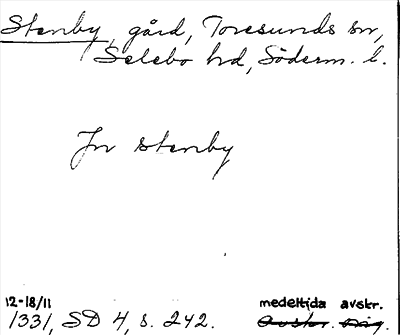 Stenby, gård, Toresunds sn,
Selebo hd, Söderm. l.
Jn stenby
12-18/11 medeltida avskr.
1331, SD 4, s. 242. Avskr. orig.